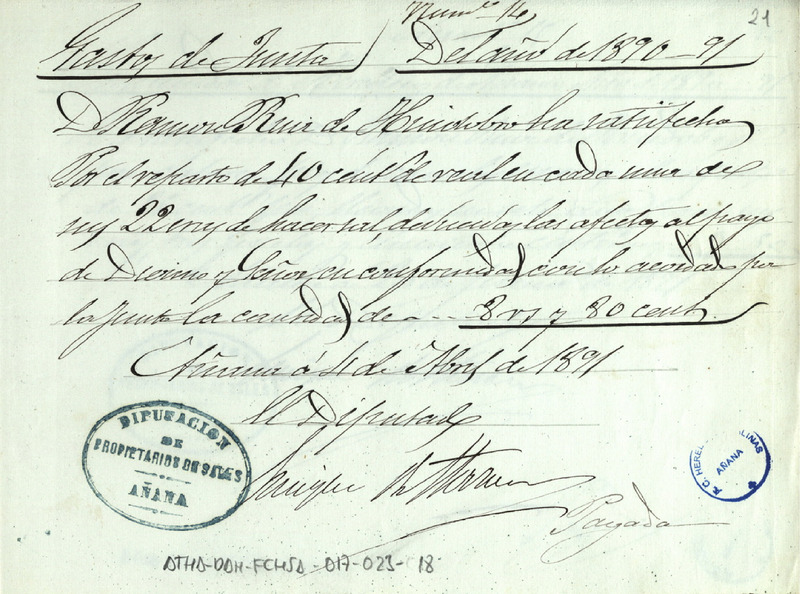 Num.º 14
21
Gastos de Junta
Del año de 1890-91
D. Ramon Ruiz de ha satisfecho
Por el reparto de 40 cént.s de real en cada una de
sus 22 eras de hacer sal, deducidas las afectas al pago
de Diezmo y Señor en conformidad con lo acordado por
la Junta la cantidad de - - - 8 rs y 80 cents.
Añana á 4 de Abril de 1891
El Diputado
DIPUTACION
DE
PROPIETARIOS DE SALES
AÑANA
AÑANA
Pagada
ATHA-DAH-FCHSA-017-023-18